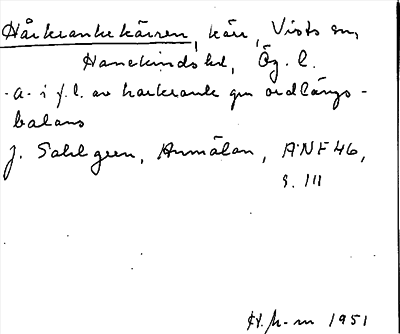 Hårkrankekärren, kärr, Vists sn,
Hanekinds hd, Ög. l.
-a- i f.l. av harkrank gm ordlängds-
balans
J. Sahlgren, Anmälan, ANF 46,
s. 111
H. h-m 1951